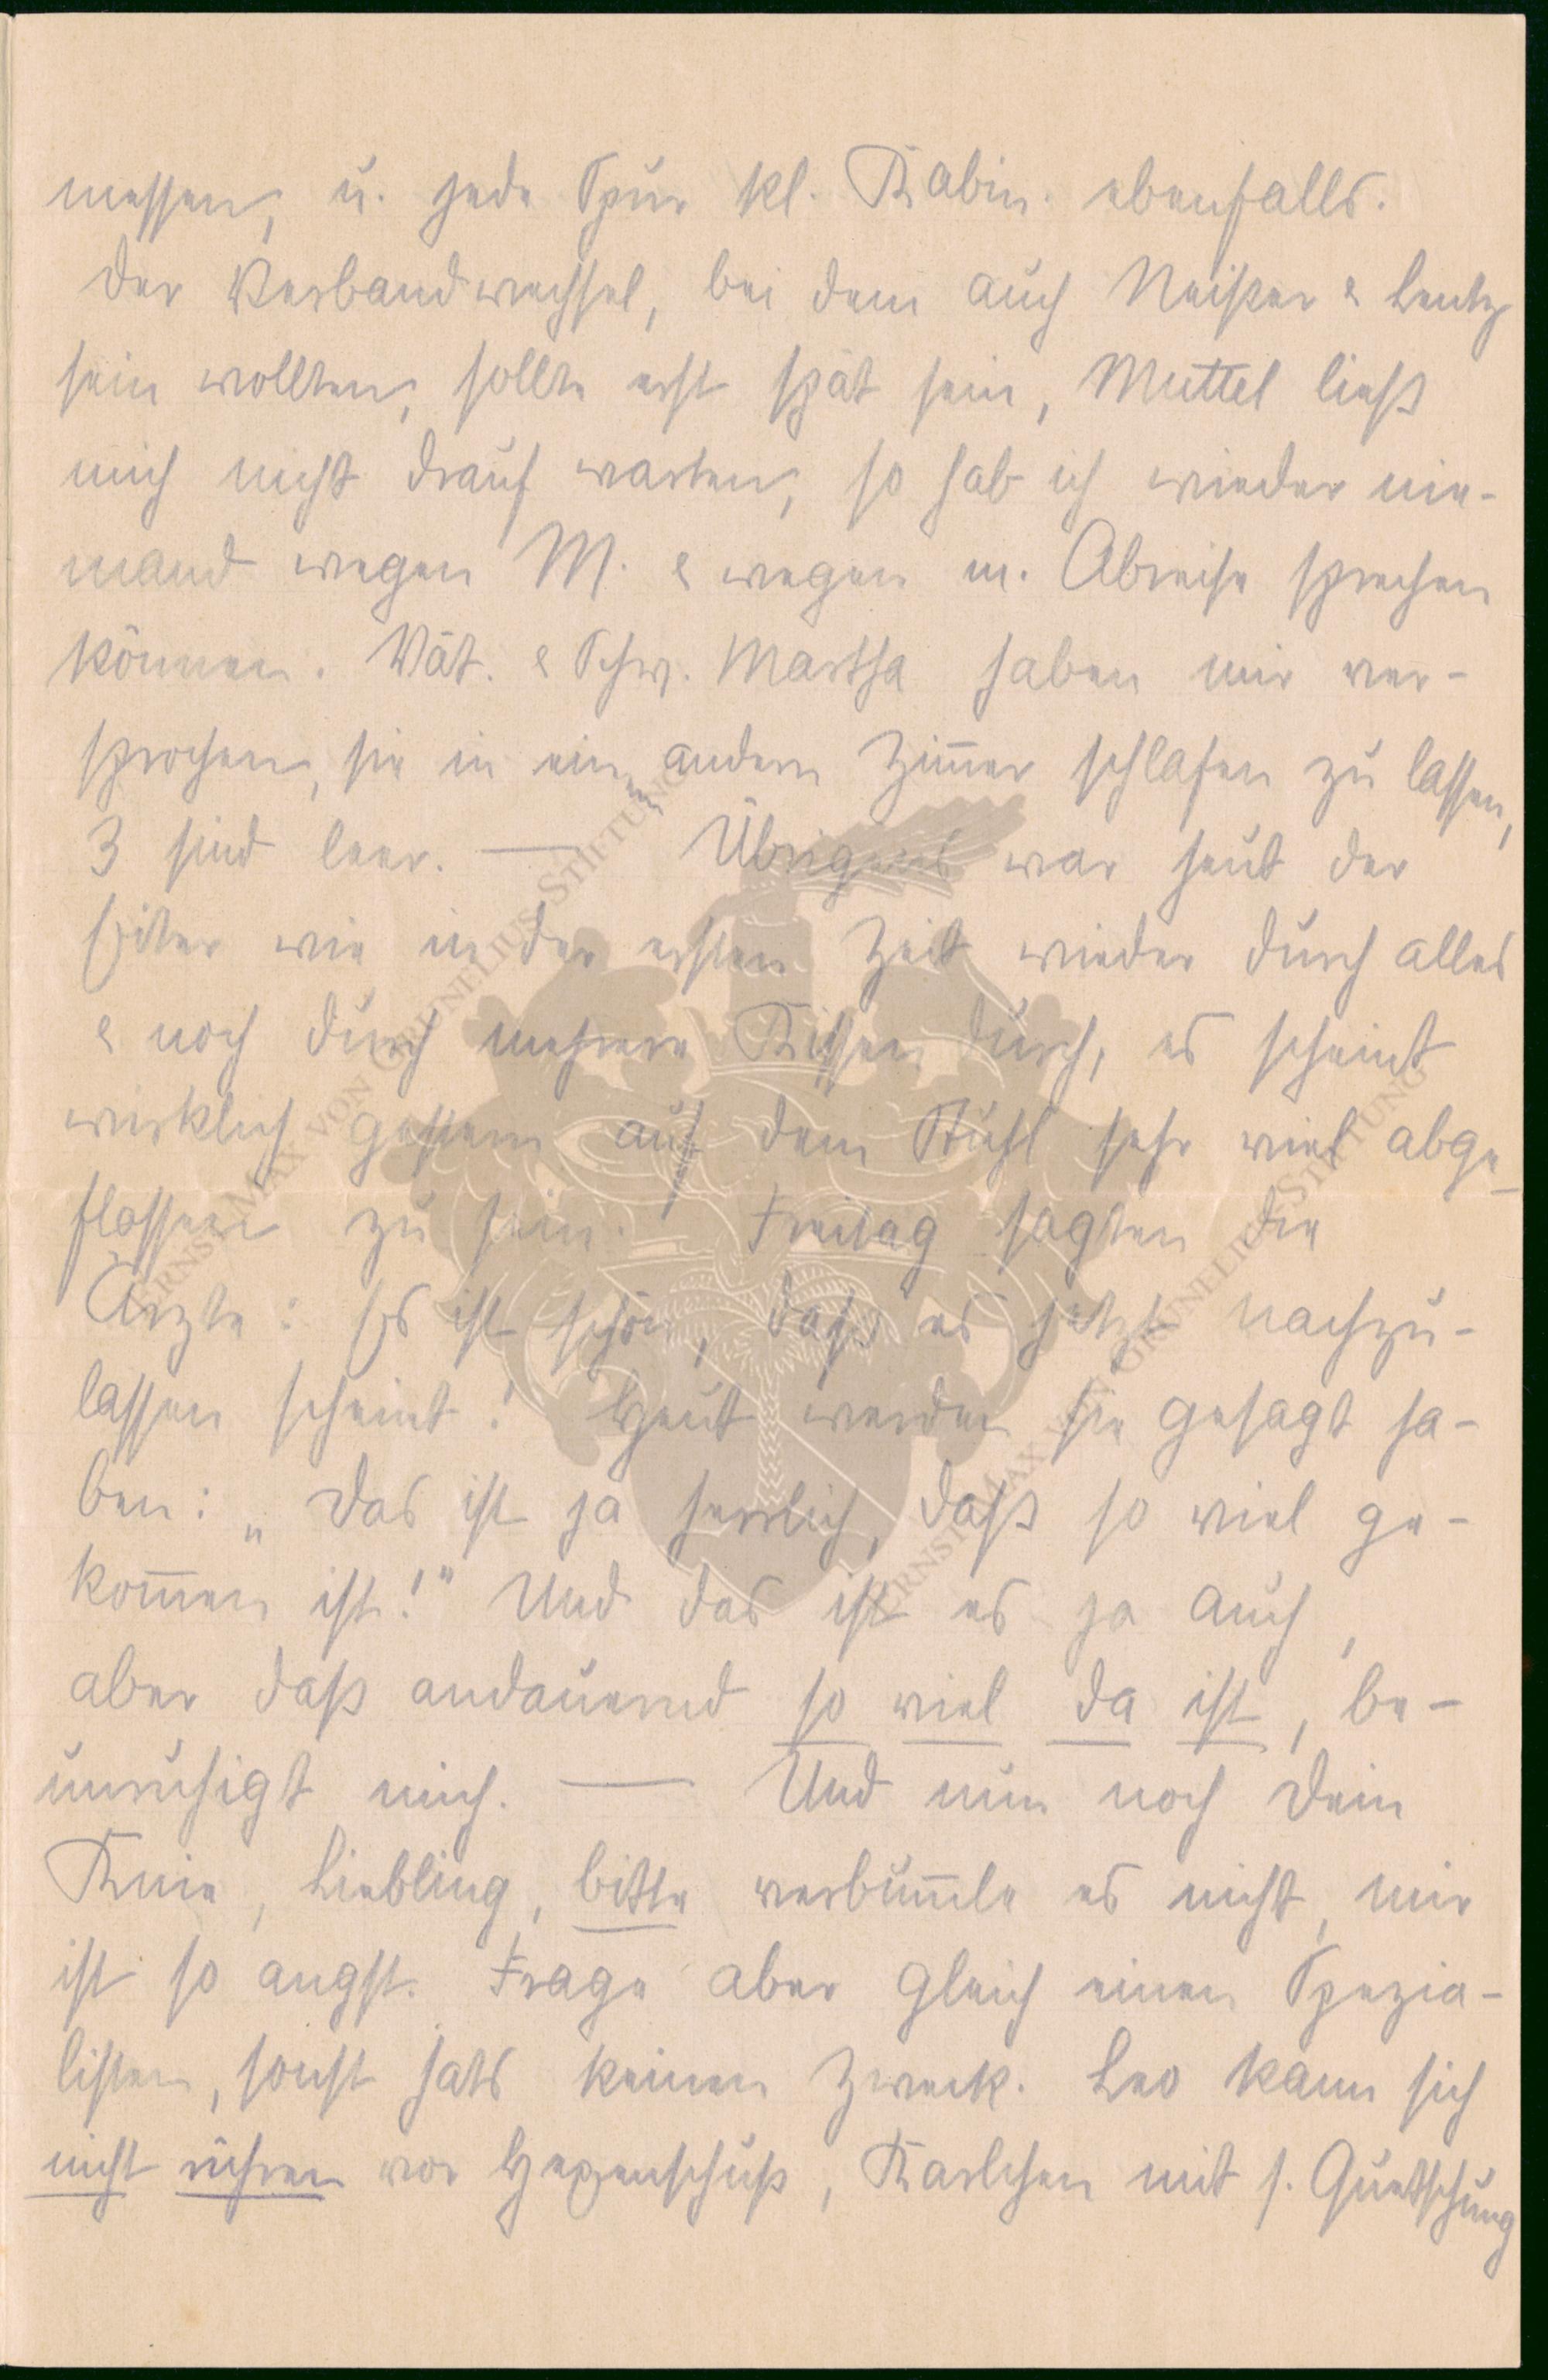 messen, u. jede Spur kl. Kabin. ebenfalls.
Der Verbandwechsel, bei dem auch Neißer & Lentz
sein wollten, sollte erst spät sein, Muttel ließ
mich nicht drauf warten, so hab ich wieder nie-
mand wegen M. & wegen m. Abreise sprechen
können. Vät. & Schw. Martha haben mir ver-
sprochen, sie in einem andern Zim̄er schlafen zu lassen,
3 sind leer. — Übrigens war heut der
Eiter wie in der ersten Zeit wieder durch alles
& noch durch mehrere Kissen durch, es scheint
wirklich gestern auf dem Stuhl sehr viel abge-
flossen zu sein. Freitag sagten die
Ärzte: Es ist schön, daß es jetzt nachzu-
lassen scheint! Heut werden sie gesagt ha-
ben: „Das ist ja herrlich, daß so viel ge-
kom̄en ist!" Und das ist es ja auch,
aber daß andauernd so viel da ist, be-
unruhigt mich. — Und nun noch Dein
Knie, Liebling, bitte verbum̄le es nicht, mir
ist so angst. Frage aber gleich einen Spezia-
listen, sonst hats keinen Zweck. Leo kann sich
nicht rühren vor Hexenschuß, Karlchen mit s. Quetschung
ERNST MAX VON GRUNELIUS-STIFTUNG
ERNST MAX VON GRUNELIUS-STIFTUNG